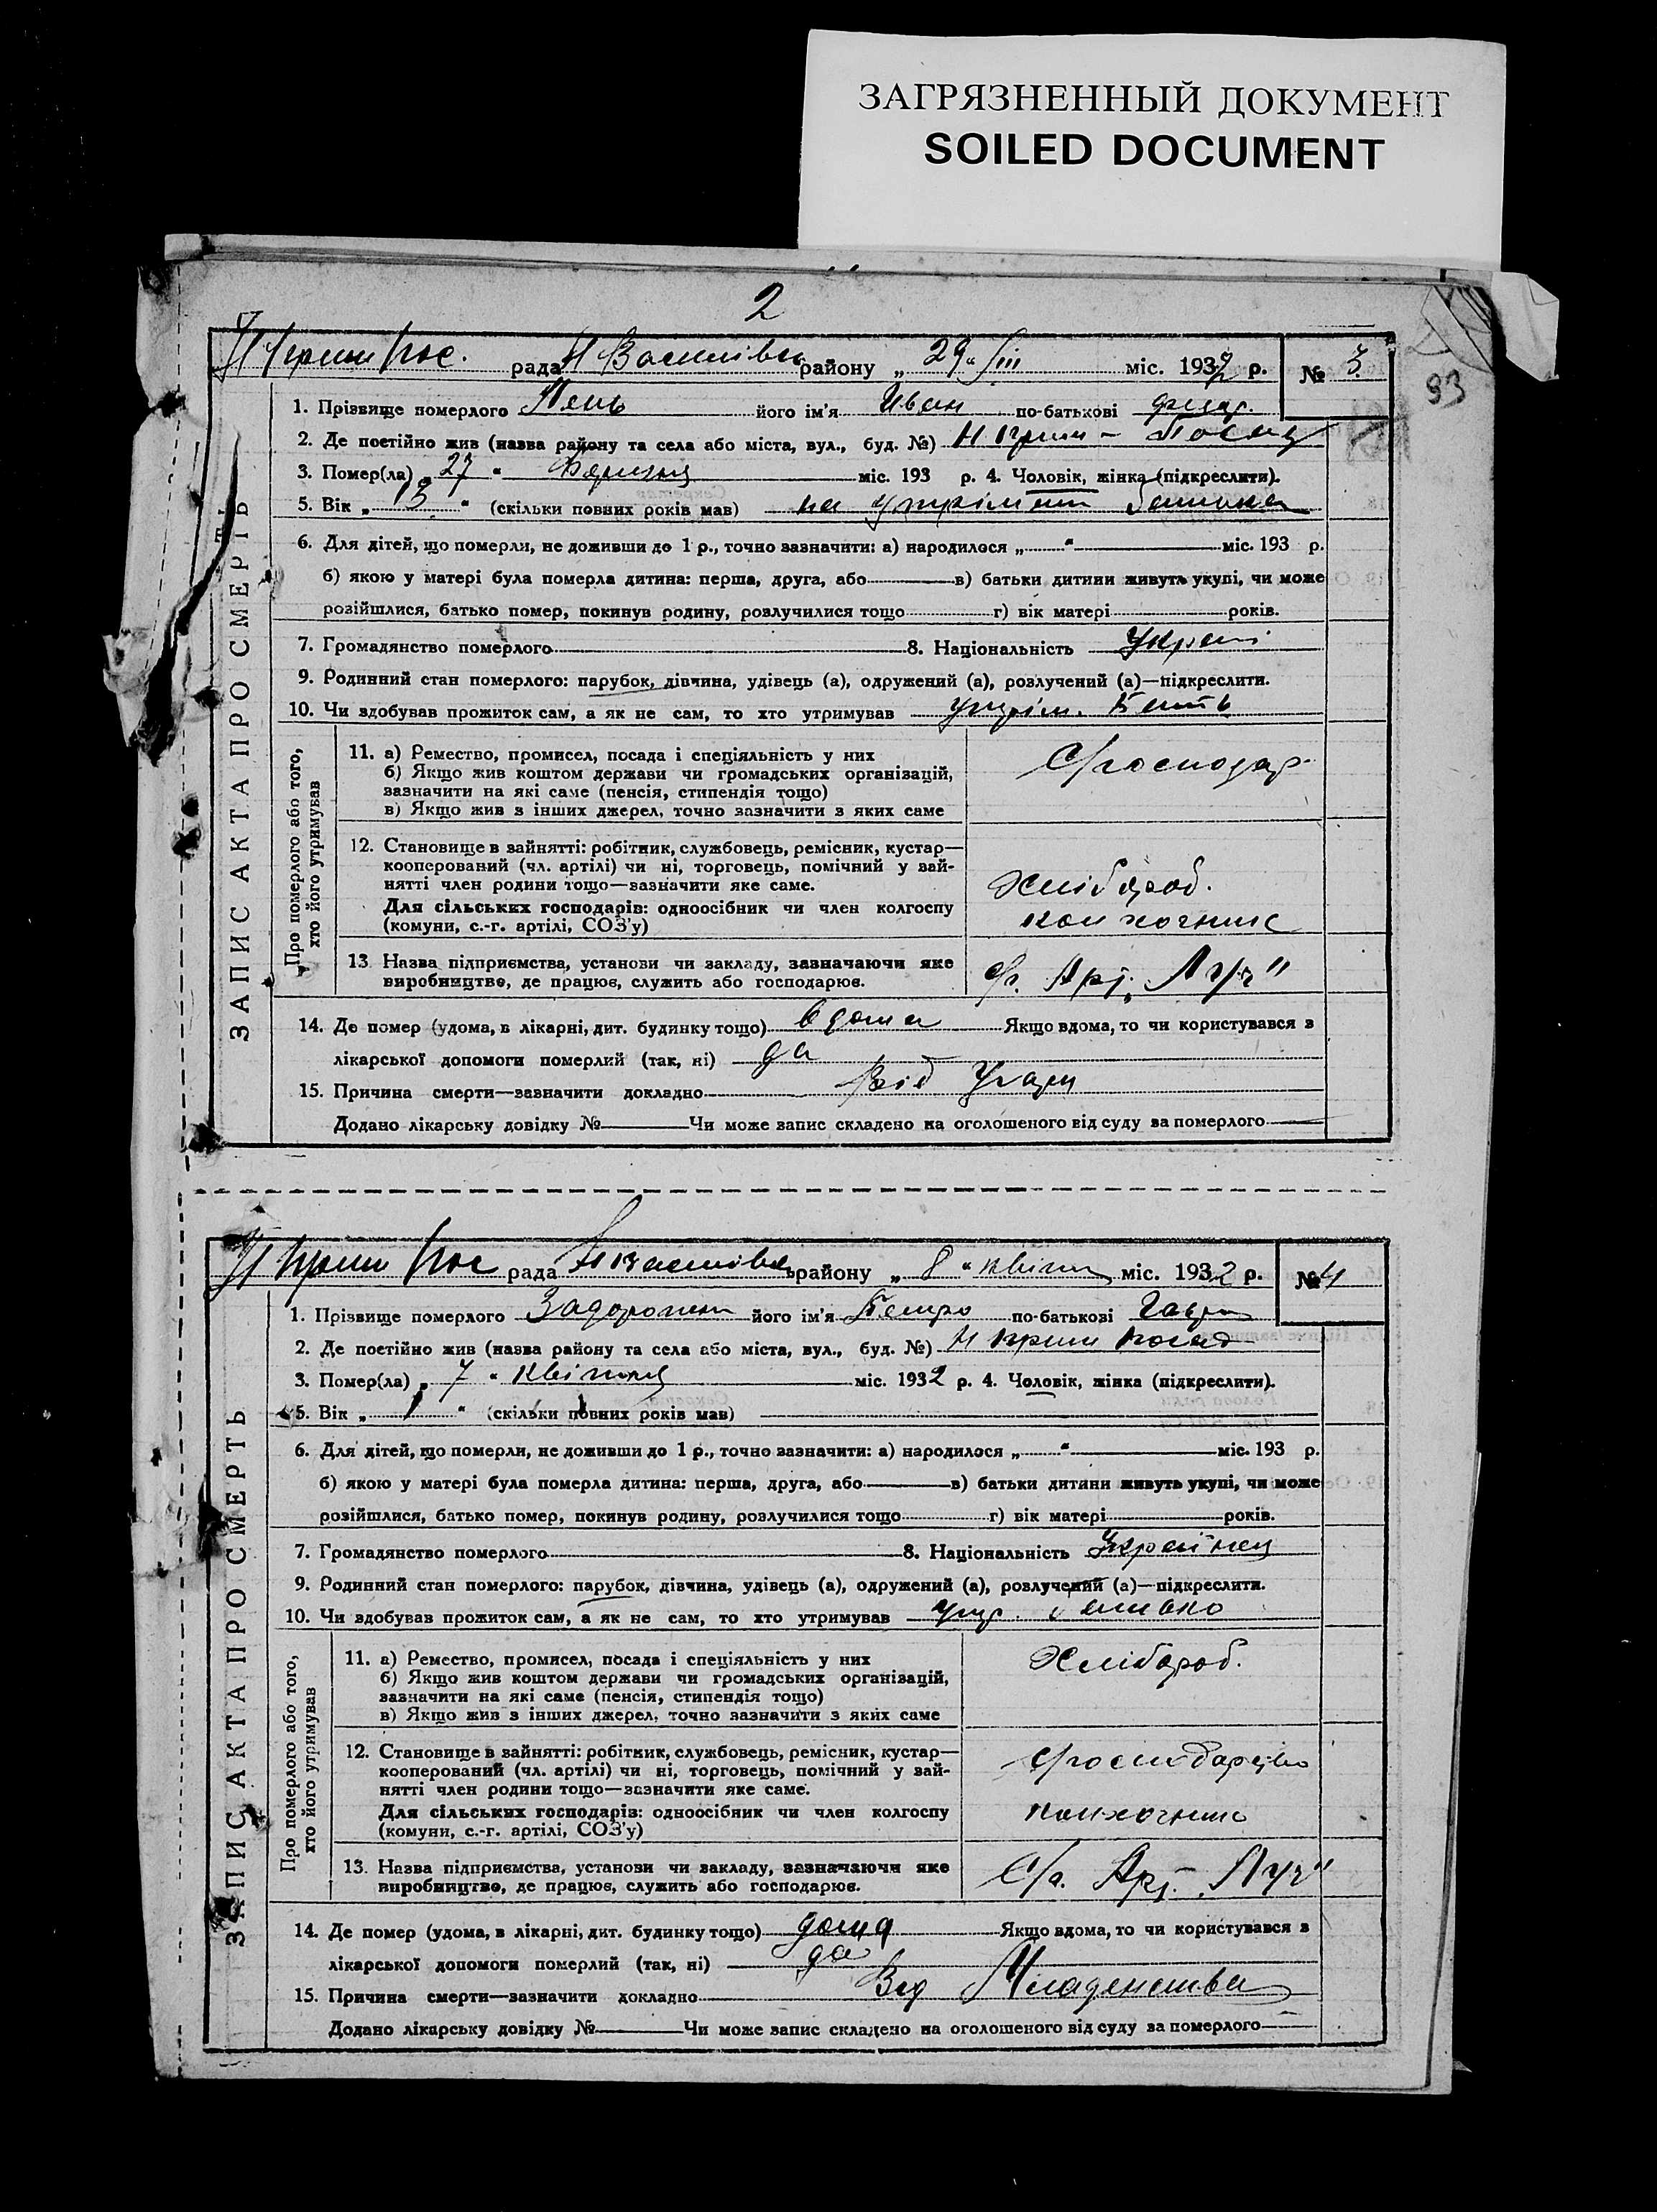 ЗАГРЯЗНЕННЫЙ ДОКУМЕНТ
SOILED DOCUMENT
2
93
рада Н Василівськ району „29“ III міс. 1932 р. № 3
1. Прізвище померлого Пень його ім'я Иван по-батькові
2. Де постійно жив (назва району та села або міста, вул., буд. №)
3. Помер(ла) „27“ Березня міс. 193 р. 4. Чоловік, жінка (підкреслити).
5. Вік „3“ (скільки повних років мав) на утріманні батька
6. Для дітей, що померли, не доживши до 1 р., точно зазначити: а) народилося „ “ міс. 193 р.
б) якою у матері була померла дитина: перша, друга, або в) батьки дитини живуть укупі, чи може
розійшлися, батько помер, покинув родину, розлучилися тощо г) вік матері років.
7. Громадянство померлого 8. Національність Украї
9. Родинний стан померлого: парубок, дівчина, удівець (а), одружений (а), розлучений (а)—підкреслити.
10. Чи здобував прожиток сам, а як не сам, то хто утримував утрім.
ЗАПИС АКТА ПРО СМЕРТЬ
Про померлого або того,
хто його утримував
11. а) Ремество, промисел, посада і спеціяльність у них
б) Якщо жив коштом держави чи громадських організацій,
зазначити на які саме (пенсія, стипендія тощо)
в) Якщо жив з інших джерел, точно зазначити з яких саме
С/господар
12. Становище в зайнятті: робітник, службовець, ремісник, кустар—
кооперований (чл. артілі) чи ні, торговець, помічний у зай-
нятті член родини тощо—зазначити яке саме.
Для сільських господарів: одноосібник чи член колгоспу
(комуни, с.-г. артілі, СОЗ'у)
Хлібороб.
колхочник
13. Назва підприємства, установи чи закладу, зазначаючи яке
виробництво, де працює, служить або господарює.
с/г. Арт. „Луч"
14. Де помер (удома, в лікарні, дит. будинку тощо) вдома Якщо вдома, то чи користувався з
лікарської допомоги померлий (так, ні) да
15. Причина смерти—зазначити докладно Від Угару
Додано лікарську довідку № Чи може запис складено на оголошеного від суду за померлого
рада Н Василівськ району „8“ квітня міс. 1932 р. № 4
1. Прізвище померлого Задорожни його ім'я Петро по-батькові Гавр
2. Де постійно жив (назва району та села або міста, вул., буд. №)
3. Помер(ла) „7“ квітня міс. 1932 р. 4. Чоловік, жінка (підкреслити).
5. Вік „1“ (скільки повних років мав)
6. Для дітей, що померли, не доживши до 1 р., точно зазначити: а) народилося „ “ міс. 193 р.
б) якою у матері була померла дитина: перша, друга, або в) батьки дитини живуть укупі, чи може
розійшлися, батько помер, покинув родину, розлучилися тощо г) вік матері років.
7. Громадянство померлого 8. Національність Українец
9. Родинний стан померлого: парубок, дівчина, удівець (а), одружений (а), розлучений (а)—підкреслити.
10. Чи здобував прожиток сам, а як не сам, то хто утримував утр.
ЗАПИС АКТА ПРО СМЕРТЬ
Про померлого або того,
хто його утримував
11. а) Ремество, промисел, посада і спеціяльність у них
б) Якщо жив коштом держави чи громадських організацій,
зазначити на які саме (пенсія, стипендія тощо)
в) Якщо жив з інших джерел, точно зазначити з яких саме
Хлібороб.
12. Становище в зайнятті: робітник, службовець, ремісник, кустар—
кооперований (чл. артілі) чи ні, торговець, помічний у зай-
нятті член родини тощо—зазначити яке саме.
Для сільських господарів: одноосібник чи член колгоспу
(комуни, с.-г. артілі, СОЗ'у)
с/господарство
колхочник
13. Назва підприємства, установи чи закладу, зазначаючи яке
виробництво, де працює, служить або господарює.
С/г. Арт. „Луч"
14. Де помер (удома, в лікарні, дит. будинку тощо) дома Якщо вдома, то чи користувався з
лікарської допомоги померлий (так, ні) да
15. Причина смерти—зазначити докладно Від Младенства
Додано лікарську довідку № Чи може запис складено на оголошеного від суду за померлого